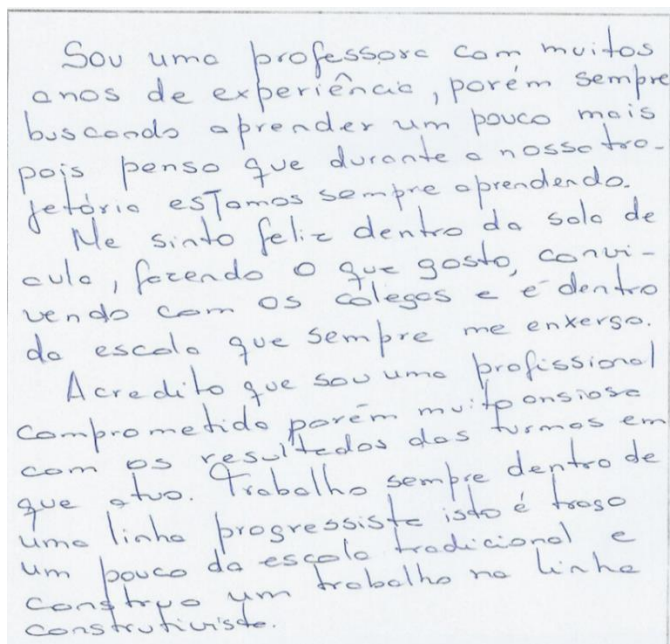 Sou uma professora com muitos
anos de experiência, porém sempre
buscando aprender um pouco mais
pois penso que durante a nossa tra-
jetória estamos sempre aprendendo.
Me sinto feliz dentro da sala de
aula, fazendo o que gosto, convi-
vendo com os colegas e é dentro
da escola que sempre me enxergo.
Acredito que sou uma profissional
comprometida porém muito ansiosa
com os resultados das turmas em
que atuo. Trabalho sempre dentro de
uma linha progressista isto é trago
um pouco da escola tradicional e
construo um trabalho na linha
construtivista.